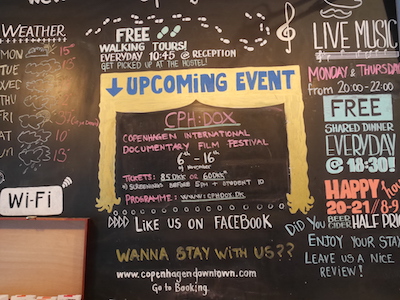 WEATHER
MON 15°
TUE 13°
WED
THU
FRI
SAT
SUN 13°
Wi-Fi
FREE
WALKING TOURS!
EVERYDAY 10:45 @ RECEPTION
GET PICKED UP AT THE HOSTEL!
UPCOMING EVENT
CPH:DOX
COPENHAGEN INTERNATIONAL
DOCUMENTARY FILM FESTIVAL
6th - 16th
OF NOVEMBER
TICKETS: 85 DKK or 60 DKK*
*) SCREENINGS BEFORE 5PM + STUDENT ID
PROGRAMME: WWW.CPHDOX.DK
LIKE US ON FACEBOOK
WANNA STAY WITH US??
www.copenhagendowntown.com
Go to Booking
LIVE MUSIC
MONDAY & THURSDAY
From 20:00-22:00
FREE
SHARED DINNER
EVERYDAY
@ 18:30!
HAPPY hou
20-21 / 8-9
BEER
CIDER
HALF PRIC
DID YOU
ENJOY YOUR STAY
LEAVE US A NICE
REVIEW!